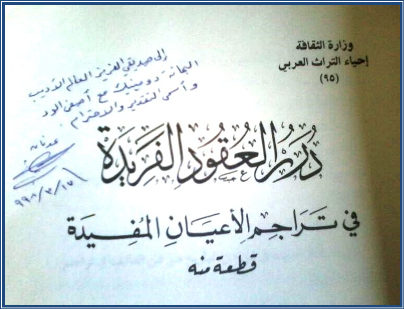 وزارة الثقافة
احياء التراث العربي
(٩٥)
إلى صديقي العزيز العالم الأديب
البحاثة دومينيك مع أصفى الود
وأسمى التقدير والاحترام
عدنان
دُرَرُ العُقودِ الفَرِيدَة
في تَرَاجِمِ الأعيَانِ المُفيدَة
قطعة منه